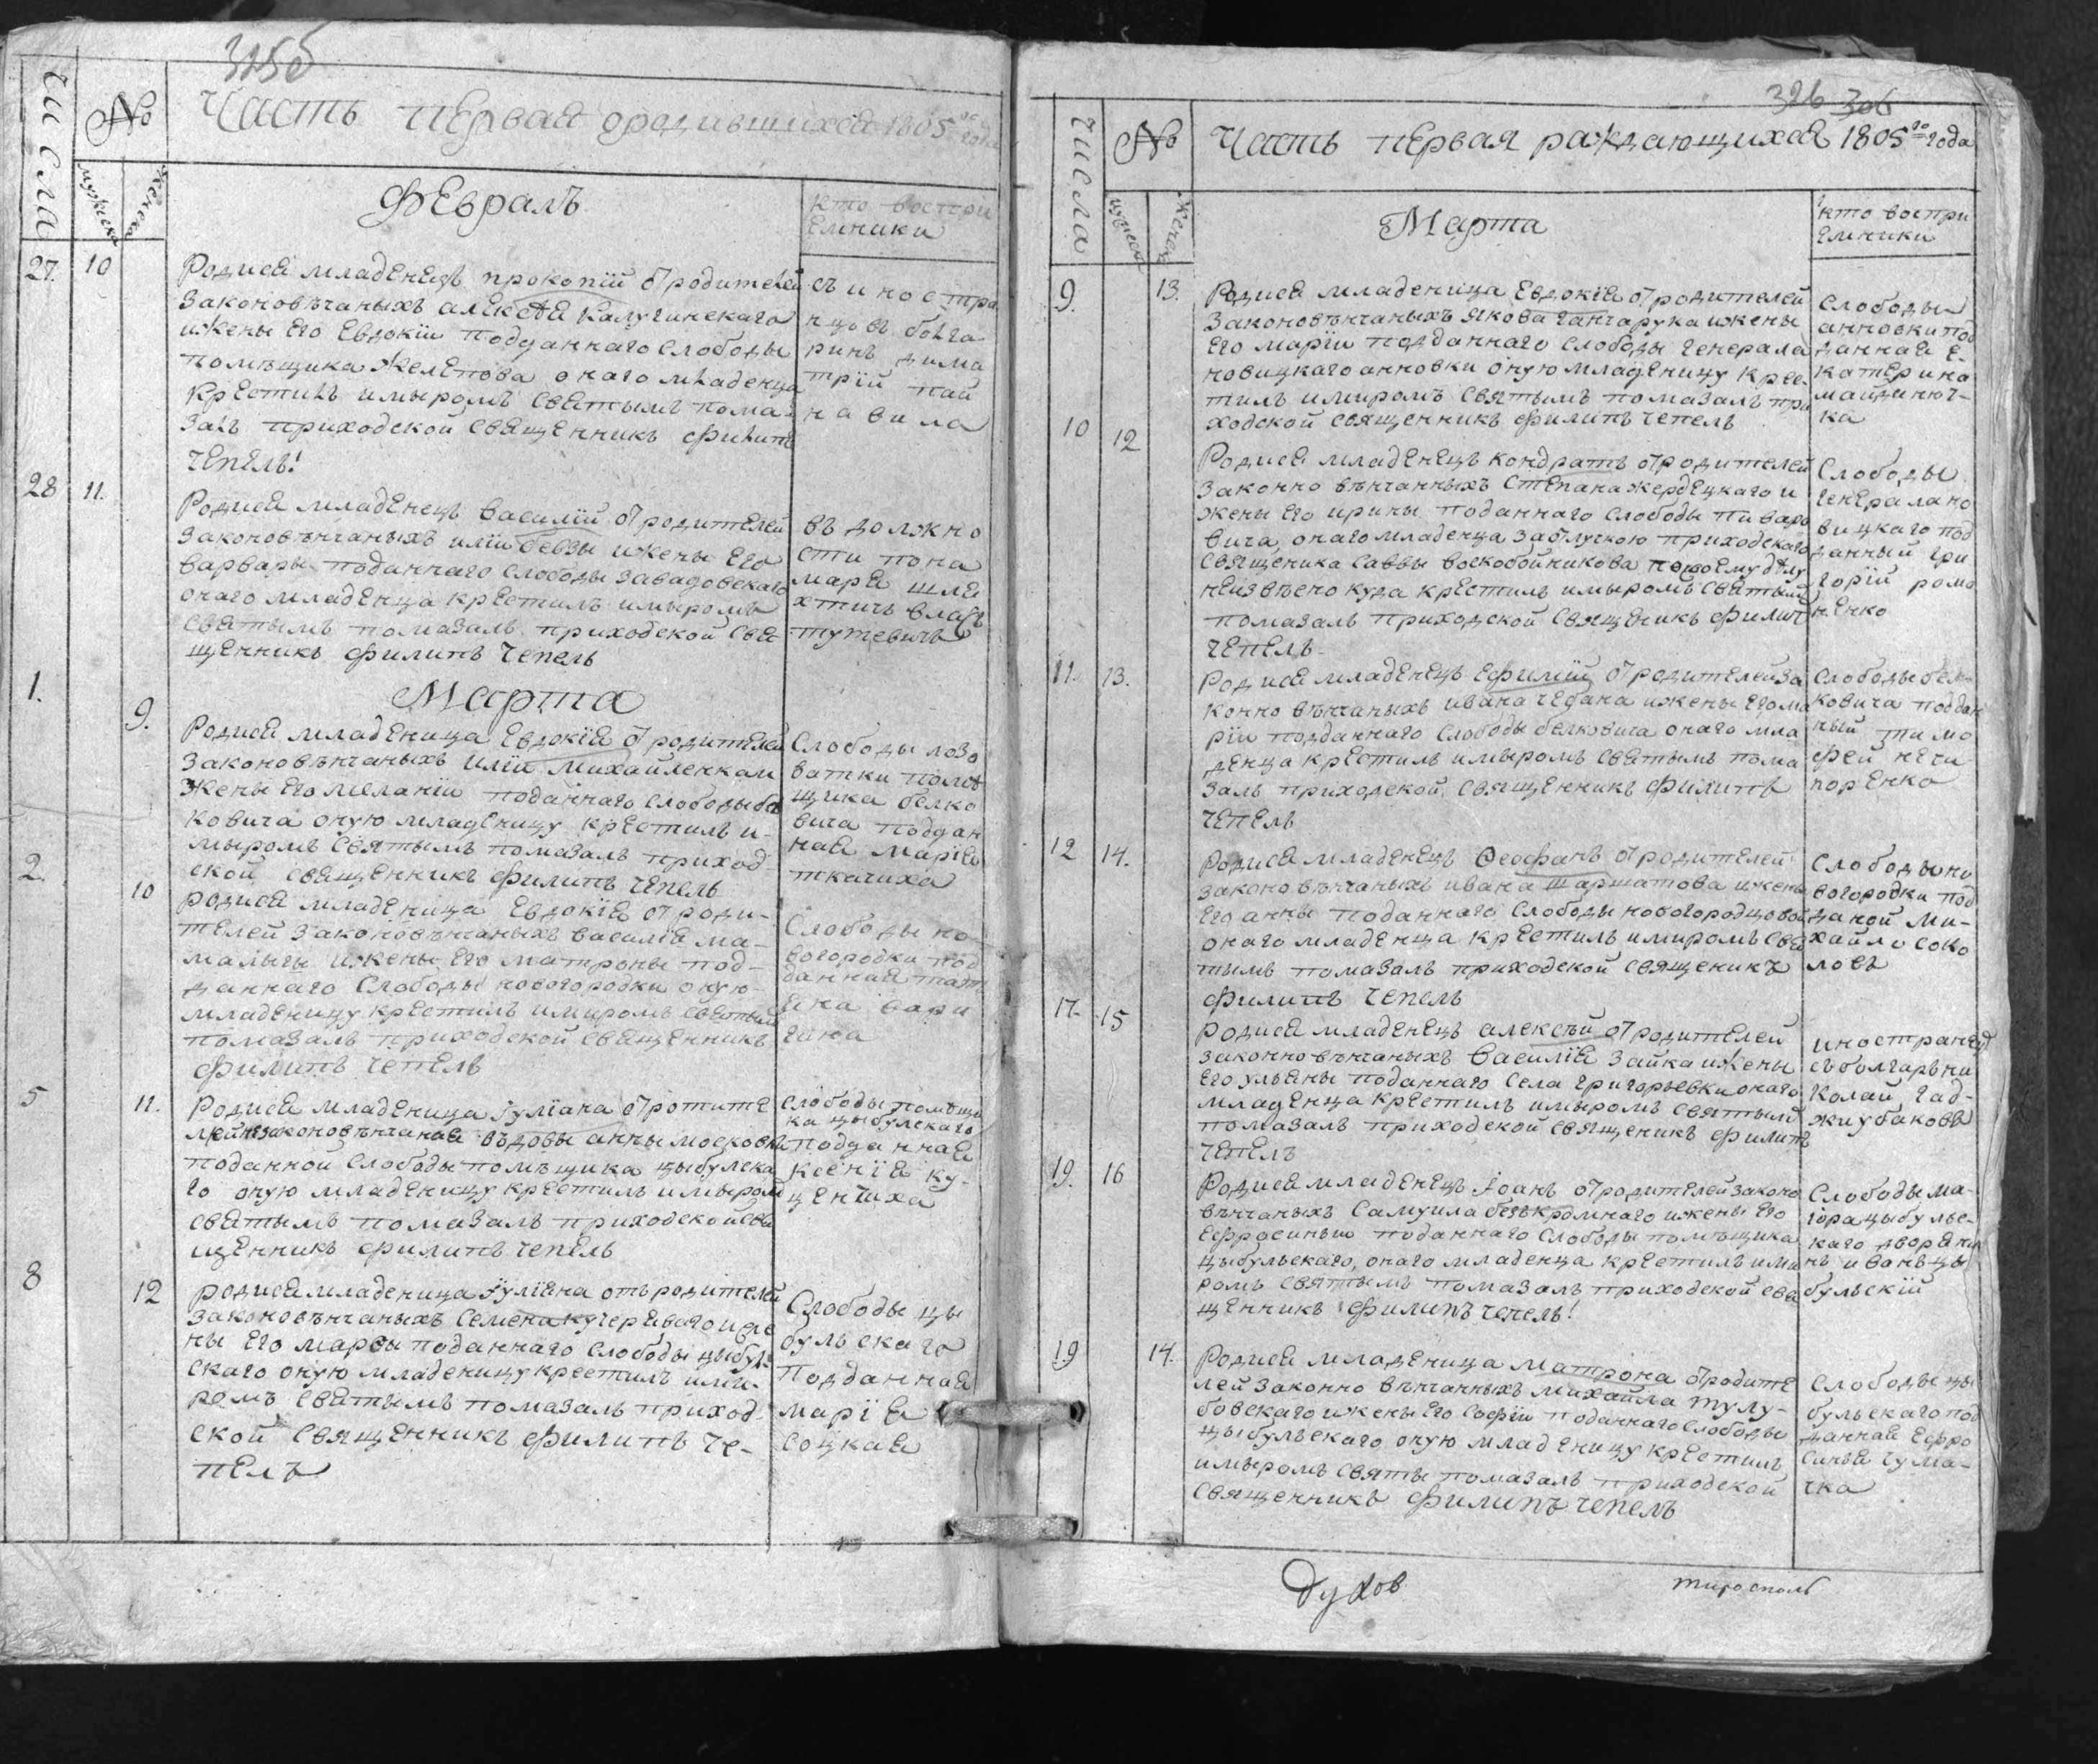 325б
числа
№
Часть первая ородившихся 1805го года
мужеска
женска
Февралъ
кто воспри
емники
27. 10
Родися младенецъ прокопїй отродителей
законовѣчаныхъ алексѣя калугинскаго
ижены его Евдокіи подданнаго слободы
помѣщика желепова онаго младенца
крестилъ имыромъ святымъ пома-
залъ приходской священникъ филипъ
чепель!
съ иностра
нцовъ болга
ринъ дими
трїй пай
навила
28 11.
Родися младенецъ василїй отродителей
законовѣнчаныхъ илїи бевзы ижены его
варвары поданнаго слободы завадовскаго
онаго младенца крестилъ имыромъ
святымъ помазалъ приходской свя
щенникъ филипъ чепель
въ должно
сти пона
маря шля
хтичь
Марта
1. 9.
Родися младеница Евдокїя отродителей
законовѣнчаныхъ илїи михайленкаи
жены его меланїи поданнаго слободы бел
ковича оную младеницу крестилъ и-
мыромъ святымъ помазалъ приход
ской священникъ филипъ чепель
слободы лозо
ватки помѣ
щика белко
вича поддан
ная марїя
ткачиха
2. 10
родися младеница Евдокїя отроди-
телей законовѣнчаныхъ василїя ма-
малыги ижены его матроны под-
даннаго слободы новогородки оную-
младеницу крестилъ имиромъ святым
помазалъ приходской священникъ
филипъ чепель
слободы но
вогородки под
данная тат
яна вари
гина
5 11.
Родися младеница Їулїана отротите
лей незаконовѣнчаная въдовы анны московки
поданной слободы помѣщика цыбулска
го оную младеницу крестилъ имыром
святымъ помазалъ приходской свя
щенникъ филипъ чепель
слободы помѣщи
ка цыбулскаго
подданная
ксенїя ку-
ценчиха
8 12
родися младеница Їулїяна отъ родителей
законовѣнчаныхъ семена кучеряваго иже
ны его марѳы поданнаго слободы цыбул
скаго оную младеницу крестилъ ими-
ромъ святымъ помазалъ приход-
ской священникъ филипъ че-
пель
Слободы цы
бульскаго
подданная
марїя
соцкая
326 306
числа
№
Часть первая раждающихся 1805го года
мужеска
женска
Марта
кто воспри
емники
9. 13.
Родися младеница Евдокїя отродителей
законовѣнчаныхъ якова ганчарука ижены
его марїи подданнаго слободы генерала
новицкаго анновки оную младеницу крес-
тилъ имиромъ святымъ помазалъ при
ходской священникъ филипъ чепель
слободы
анновки под
данная е-
катерина
майдинюч-
ка
10 12
Родися младенецъ кондратъ отродителей
законно вѣнчанныхъ степана жердецкаго и
жены его ирины поданнаго слободы пиваро
вича онаго младенца заотлучкою приходскаго
священика саввы воскобойникова посвоему дѣлу
неизвѣсно куда крестилъ имыромъ святым
помазалъ приходской священикъ филип
чепель
слободы
генерала но
вицкаго под
данный гри
горїй рома
ненко
11. 13.
Родися младенецъ Ефимїй отродителей за
конно вѣнчаныхъ ивана чебана ижены его ма
рїи подданнаго слободы белковича онаго мла
денца крестилъ имыромъ святымъ пома
залъ приходской священникъ филипъ
чепель
слободы бел-
ковича поддан
ный тимо
фей нечи
поренко
12 14.
Родися младенецъ Ѳеофанъ отродителей
законо вѣнчаныхъ ивана шаршатова ижены
его анны поданнаго слободы новогородцовой
онаго младенца крестилъ имиромъ свя
тымъ помазалъ приходской священикъ
филипъ чепель
слободы но
вогородки под
даной ми-
хайло соко
ловъ
17. 15
родися младенецъ алексѣй отродителей
законно вѣнчаныхъ василїя зайка ижены
его ульяны поданнаго села григорьевки онаго
младенца крестилъ имыромъ святымъ
помазалъ приходской священикъ филипъ
чепель
иностранец
съ болгаръ ни
колай гад-
жиубаковъ
19. 16
Родися младенецъ Їоанъ отродителей законо
вѣнчаныхъ самуила безъкромнаго ижены его
Ефросиньи поданнаго слободы помѣщика
цыбульскаго, онаго младенца крестилъ ими
ромъ святымъ помазалъ приходской свя
щенникъ филипъ чепель!
слободы ма-
іора цыбульс-
каго дворяни
нъ иванъ цы
бульскїй
19 14.
Родися младеница матрона отродите
лей законно вѣнчанныхъ михайла тулу-
бовскаго ижены его софїи поданнаго слободы
цыбульскаго, оную младеницу крестилъ
имыромъ святы помазалъ приходской
священникъ филипъ чепель
слободы цы
бульскаго под
данная ефро
синья чума-
чка
духов
тирасполь